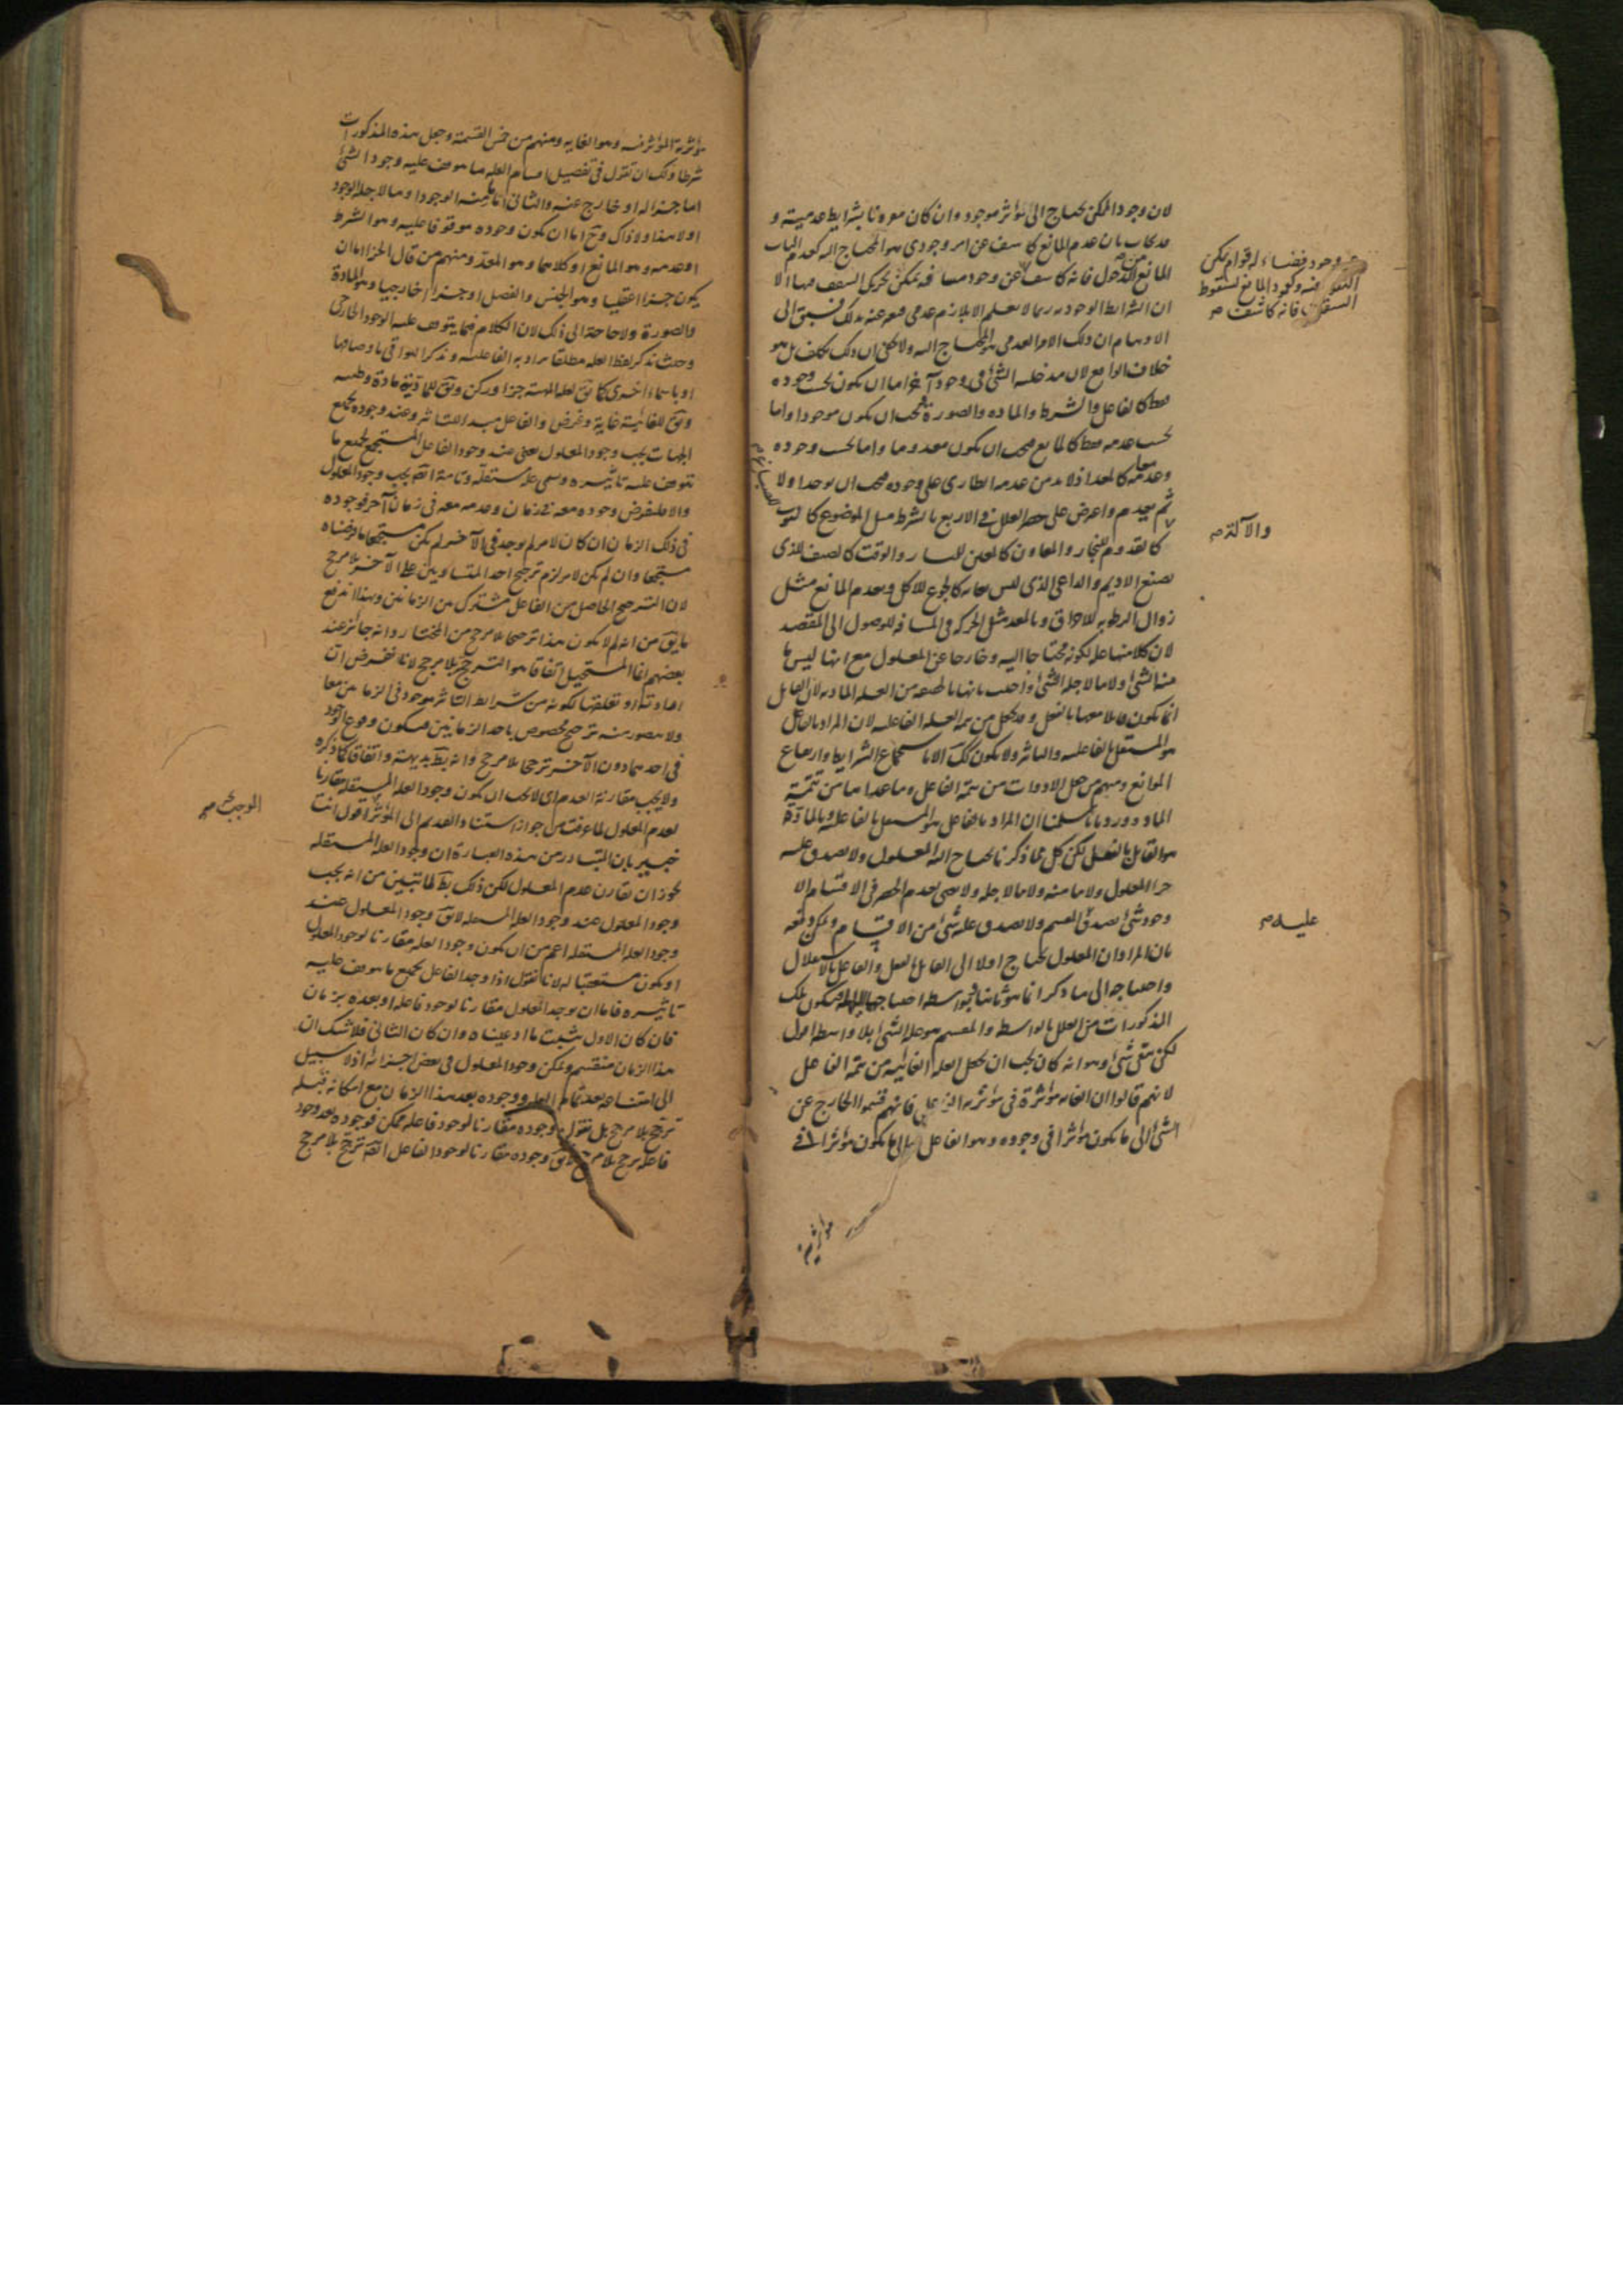 لان وجود الممكن يحتاج الى مؤثر موجود وان كان مقرونا بشرايط عدمية و
قد يجاب بان عدم المانع كاشف عن امر وجودي هو المحتاج اليه كعدم الباب
المانع للدخول فانه كاشف عن وجود مسافه يمكن تحرك السقف فيها الا
ان الشرايط الوجوديه ربما لا تعلم الا بلازم عدمي فعبر عنه بذلك فيسبق الى
الاوهام ان ذلك الامر العدمي هو المحتاج اليه ولا يخفى ان ذلك تكلف بل هو
خلاف الواقع لان مدخلية الشئ في وجود آخر اما ان يكون بحسب وجوده
فقط كالفاعل والشرط والماده والصورة فيجب ان يكون موجودا واما
بحسب عدمه فقط كالمانع فيجب ان يكون معدوما واما بحسب وجوده
وعدمه معا كالمعد اذ لا بد من عدمه الطارى على وجوده فيجب ان يوجد اولا
ثم يعدم واعترض على حصر العلل في الاربع بالشرط مثل الموضوع كالثوب
كالقدوم للنجار والمعاون كالمعين للمنشار والوقت كالصيف الذى
يصنع الاديم والداعى الذى ليس بغاية كالجوع للاكل وبعدم المانع مثل
زوال الرطوبه للاحراق وبالمعد مثل الحركه في المسافه للوصول الى المقصد
لان كلا منها علة لكونه محتاجا اليه وخارجا عن المعلول مع انها ليس ما
منه الشئ ولا ما لاجله الشئ واجيب بانها بالحقيقه من العله الماديه لان القابل
انما يكون قابلا معها بالفعل وقد يجعل من تتمه العله الفاعليه لان المراد بالفاعل
هو المستقل بالفاعليه والتاثير ولا يكون كذلك الا باستجماع الشرايط وارتفاع
الموانع ومنهم من جعل الادوات من تتمة الفاعل وما عداها من تتمة
الماده ورد بانا سلمنا ان المراد بالفاعل هو المستقل بالفاعلية وبالمادة
هو القابل بالفعل لكن كل مما ذكرنا يحتاج اليه المعلول ولا يصدق عليه
جزء المعلول ولا ما منه ولا ما لاجله ولا يعنى بعدم الحصر فى الاقسام الا
وجود شئ يصدق المقسم ولا يصدق عليه شئ من الاقسام ويمكن دفعه
بان المراد ان المعلول يحتاج اولا الى القابل بالفعل والفاعل بالاستقلال
واحتياجه الى ما ذكر انما هو ثانيا بواسطه احتياجهما اليها فيكون تلك
المذكورات من العلل بالواسطه والمقسم هو علة الشئ بلا واسطه اقول
لكن بقى شئ وهو انه كان يجب ان يجعل العله الغائيه من تتمة الفاعل
لانهم قالوا ان الغايه مؤثرة في مؤثرية الفاعل فانهم قسموا الخارج عن
الشئ الى ما يكون مؤثرا فى وجوده وهو الفاعل والى ما يكون مؤثرا فى
وجود فضاء له قوام يمكن
النفوذ فيه وكعمود المانع لسقوط
السقف فانه كاشف صح
والآلة صح
عليه صح
مؤثرية المؤثر فيه وهو الغايه ومنهم من خمس القسمة وجعل هذه المذكورات
شرطا ولك ان تقول فى تفصيل اقسام العله ما يتوقف عليه وجود الشئ
اما جزء له او خارج عنه والثانى اما ما منه الوجود او ما لاجله الوجود
او لا هذا ولا ذاك وح اما ان يكون وجوده موقوفا عليه وهو الشرط
او عدمه وهو المانع او كلاهما وهو المعد ومنهم من قال الجزء اما ان
يكون جزءا عقليا وهو الجنس والفصل او جزءا خارجيا وهو المادة
والصورة ولا حاجة الى ذلك لان الكلام فيما يتوقف عليه الوجود الخارجى
وحيث يذكر لفظ العله مطلقا يراد به الفاعليه ويذكر البواقى باوصافها
او باسماء اخرى كما يق لعلة الماهية جزء وركن ويق للمادية مادة وطينه
ويق للغائية غاية وغرض والفاعل مبدا للتاثير وعند وجوده بجميع
الجهات يجب وجود المعلول يعنى عند وجود الفاعل المستجمع لجميع ما
يتوقف عليه تاثيره ويسمى علة مستقلة وتامة ايضا يجب وجود المعلول
والا فليفرض وجوده معه فى زمان وعدمه معه فى زمان آخر فوجوده
فى ذلك الزمان ان كان لامر لم يوجد فى الآخر لم يكن مستجمعا ما فرضناه
مستجمعا وان لم يكن لامر لزم ترجيح احد المتساويين على الآخر بلا مرجح
لان الترجيح الحاصل من الفاعل مشترك بين الزمانين وبهذا اندفع
ما يق من انه لم لا يكون هذا ترجيحا بلا مرجح من المختار وانه جائز عند
بعضهم انما المستحيل اتفاقا هو الترجح بلا مرجح لانا نفرض ان
ارادته او تعلقها لكونه من شرايط التاثير موجود فى الزمانين معا
ولا يتصور منه ترجيح مخصوص باحد الزمانين فيكون وقوع الوجود
فى احدهما دون الآخر ترجحا بلا مرجح وانه بط بديهة واتفاقا كما ذكره
ولا يجب مقارنة العدم اى لا يجب ان يكون وجود العله المستقله مقارنا
لعدم المعلول لما عرفت من جواز استناد القديم الى المؤثر اقول انت
خبير بان المتبادر من هذه العبارة ان وجود العله المستقله
يجوز ان يقارن عدم المعلول لكن ذلك بط لما تبين من انه يجب
وجود المعلول عند وجود العله المستقله لا يق وجود المعلول عند
وجود العله المستقله اعم من ان يكون وجود العله مقارنا لوجود المعلول
او يكون مستعقبا له لانا نقول اذا وجد الفاعل بجميع ما يتوقف عليه
تاثيره فاما ان يوجد المعلول مقارنا لوجود فاعله او بعده بزمان
فان كان الاول يثبت ما ادعيناه وان كان الثانى فلا شك ان
هذا الزمان منقسم ويمكن وجود المعلول فى بعض اجزائه اذ لا سبيل
الى امتناعه بعد تمام العله ووجوده بعد هذا الزمان مع امكانه قبله
ترجح بلا مرجح بل نقول وجوده مقارنا لوجود فاعله ممكن فوجوده بعد وجود
فاعله ترجح بلا مرجح لا يق وجوده مقارنا لوجود الفاعل ايضا ترجح بلا مرجح
الموجب صح
مؤثرية